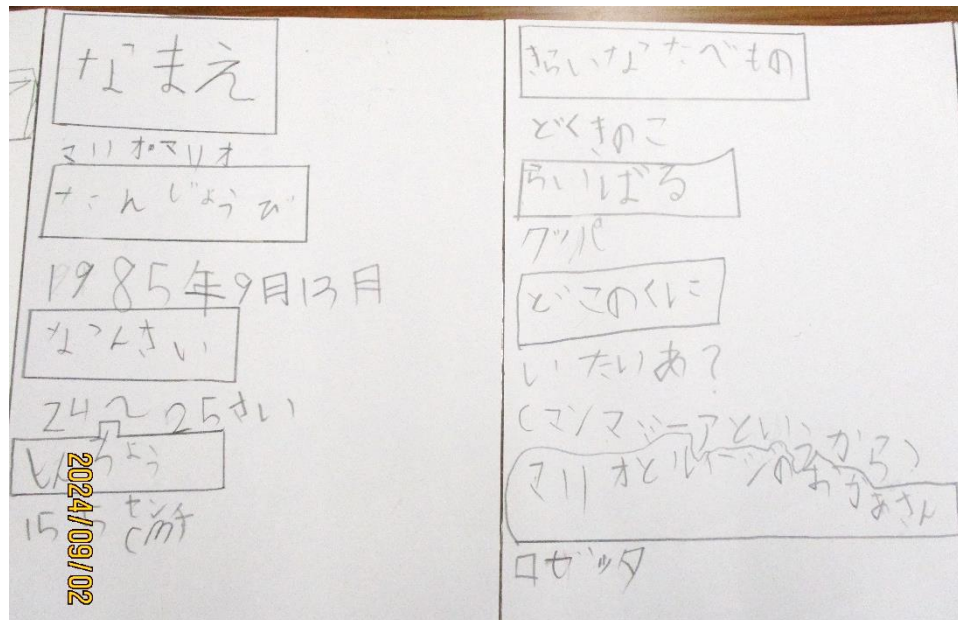 なまえ
マリオ・マリオ
たんじょうび
1985年9月13月
なんさい
24～25さい
しんちょう
155 cm センチ
きらいなたべもの
どくきのこ
らいばる
クッパ
どこのくに
いたいあ?
(マンマミーアというから)
マリオとルイージのおかあさん
ロゼッタ
2024/09/02